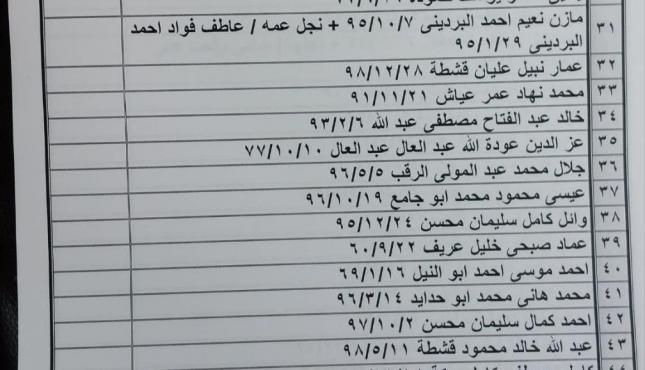 ٣١ مازن نعيم احمد البردينى ٩٥/١٠/٧ + نجل عمه / عاطف فواد احمد
البردينى ٩٥/١/٢٩
٣٢ عمار نبيل عليان قشطة ٩٨/١٢/٢٨
٣٣ محمد نهاد عمر عياش ٩١/١١/٢١
٣٤ خالد عبد الفتاح مصطفى عبد الله ٩٣/٢/٦
٣٥ عز الدين عودة الله عبد العال عبد العال ٧٧/١٠/١٠
٣٦ جلال محمد عبد المولى الرقب ٩٦/٥/٥
٣٧ عيسى محمود محمد ابو جامع ٩٦/١٠/١٩
٣٨ وائل كامل سليمان محسن ٩٥/١٢/٢٤
٣٩ عماد صبحى خليل عريف ٦٠/٩/٢٢
٤٠ احمد موسى احمد ابو النيل ٦٩/١/١٦
٤١ محمد هانى محمد ابو حدايد ٩٦/٣/١٤
٤٢ احمد كمال سليمان محسن ٩٧/١٠/٢
٤٣ عبد الله خالد محمود قشطة ٩٨/٥/١١
٤٤